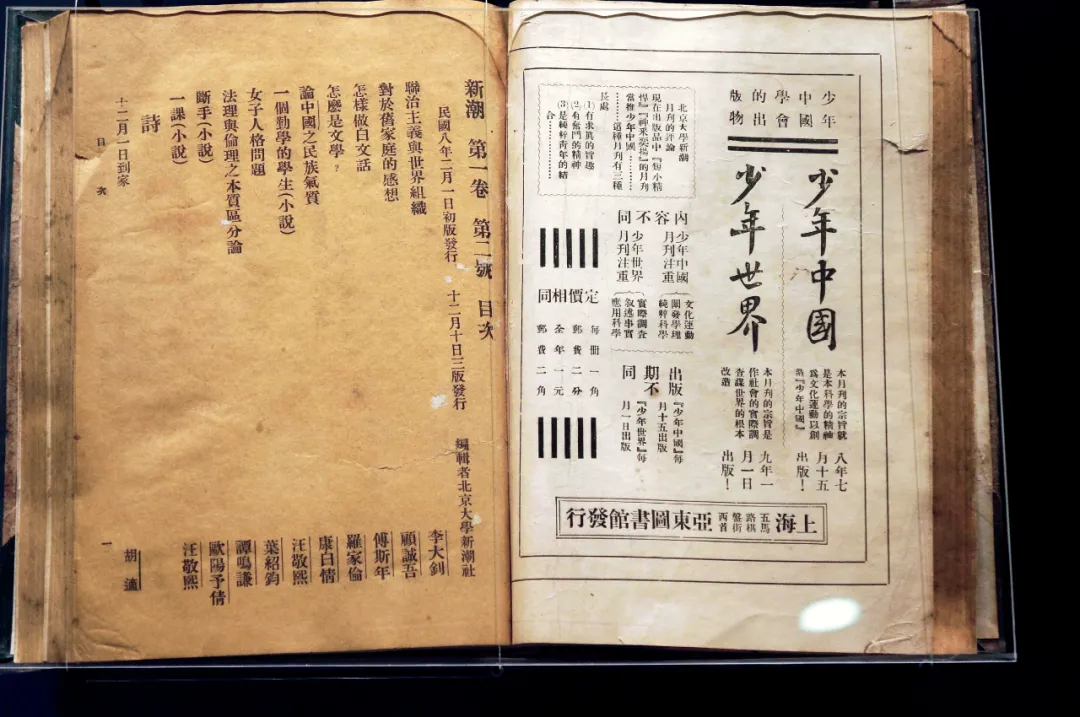 少年
中國
學會
的出
版物
少年中國
本月刊的宗旨就
是本科學的精神
為文化運動以創
造『少年中國』
八年七
月十五
出版！
少年世界
本月刊的宗旨是
作社會的實際調
查謀世界的根本
改造
九年一
月一日
出版！
北京大學新潮
月刊的評論
現在出版品中『短小精
悍』『神釆奕揚』的月刊
當推少年中國………
………這種月刊有三種
長處
(1)有求眞的旨趣
(2)有奮鬥的精神
(3)是純粹靑年的結
合………………
內容不同
少年中國
月刊注重
文化運動
闡發學理
純粹科學
少年世界
月刊注重
實際調査
敘述事實
應用科學
出版
期不
同
『少年中國』每
月十五出版
『少年世界』每
月一日出版
定價相同
每冊一角
郵費二分
全年一元
郵費二角
上海
五馬
路棋
盤街
西首
亞東圖書館發行
新潮　第一卷　第二號　目次
民國八年二月一日初版發行　十二月十日三版發行
編輯者北京大學新潮社
聯治主義與世界組織　李大釗
對於舊家庭的感想　顧誠吾
怎樣做白文話　傅斯年
怎麼是文學？　羅家倫
論中國之民族氣質　康白情
一個勤學的學生(小說)　汪敬熙
女子人格問題　葉紹鈞
法理與倫理之本質區分論　譚鳴謙
斷手(小說)　歐陽予倩
一課(小說)　汪敬熙
詩
十二月一日到家　胡適
目次
一